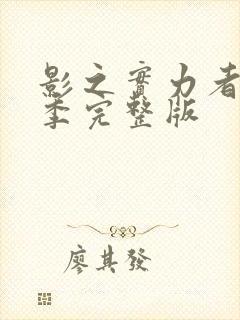 影之實力者
季完整版
廖其發